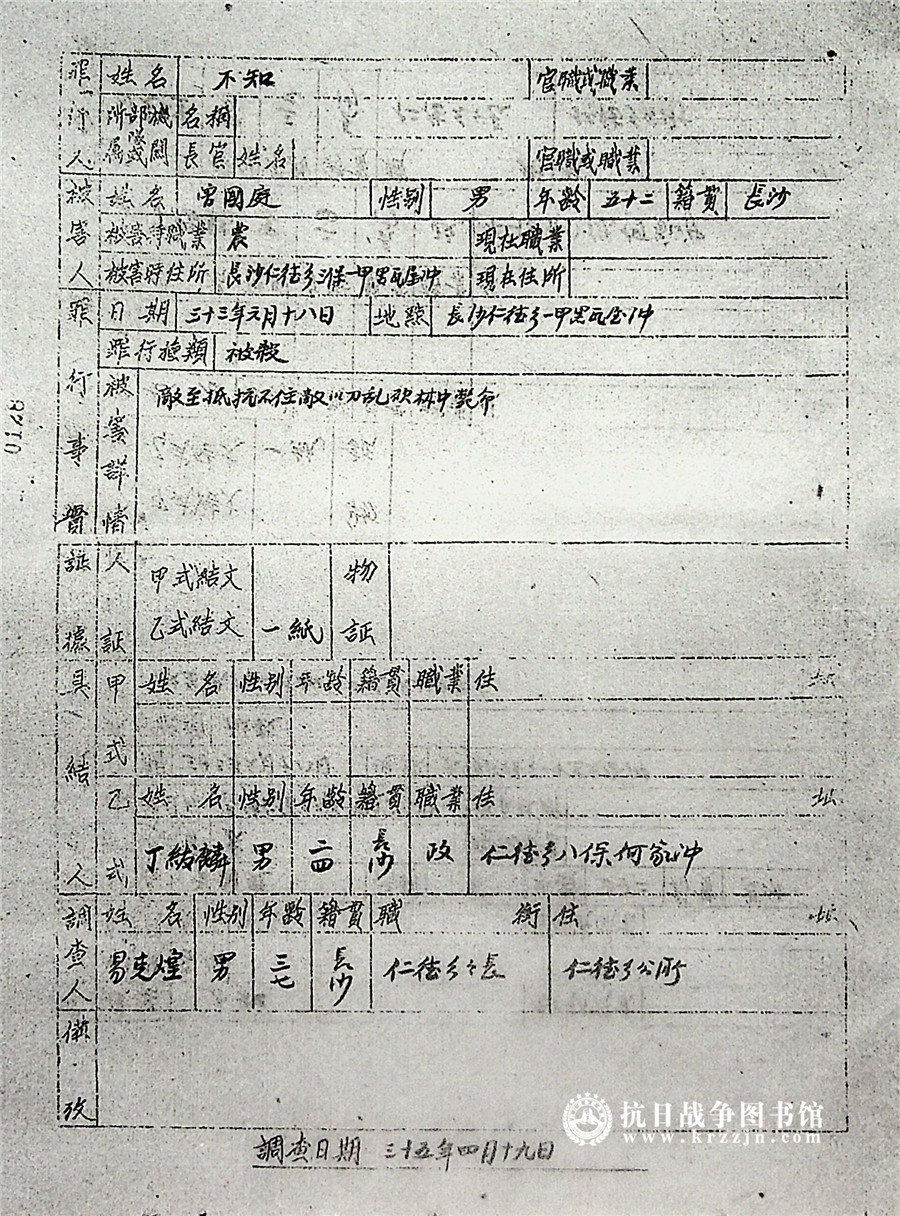 罪行人 姓名 不知 官職或職業
所屬部隊或機關 名稱
長官 姓名 官職或職業
被害人 姓名 曾國庭 性别 男 年齡 五十二 籍貫 長沙
被害時職業 農 現在職業
被害時住所 長沙仁德乡 保一甲黑瓦屋冲 現在住所
罪行事實 日期 三十三年 月十八日 地點 長沙仁德乡一甲黑瓦屋冲
罪行種類 被殺
被害詳情 敵至抵抗不住敵以刀乱砍林中斃命
証據 人証 甲式結文
乙式結文 一紙 物証
具結人 甲式 姓名 性别 年齡 籍貫 職業 住址
乙式 姓名 性别 年齡 籍貫 職業 住址
丁紱麟 男 二四 長沙 政 仁德乡八保何家冲
調查人 姓名 性别 年齡 籍貫 職銜 住址
易克煌 男 三七 長沙 仁德乡乡長 仁德乡公所
備攷
調查日期 三十五年四月十九日
0128
抗日战争图书馆
www.krzzjn.com